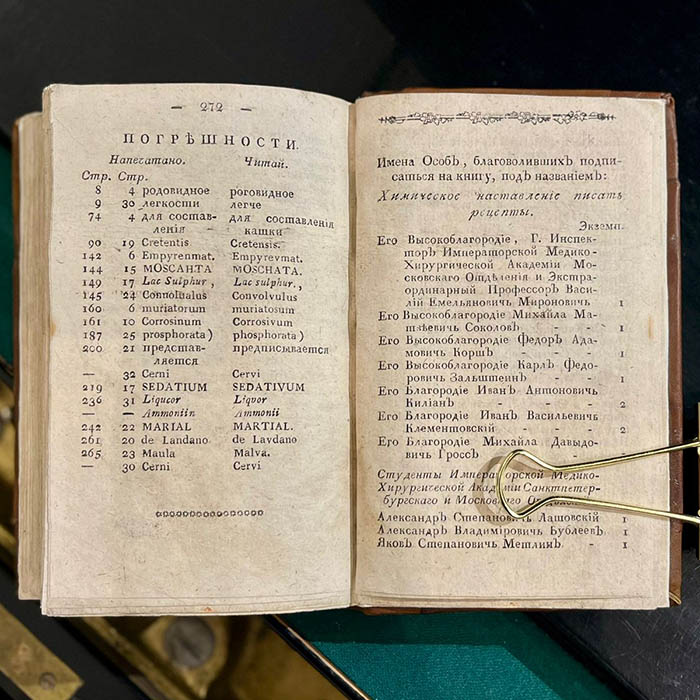 — 272 —
ПОГРѢШНОСТИ.
Напечатано. Читай.
Стр. Стр.
8 4 родовидное роговидное
9 30 легкости легче
74 4 для состав- для составленія
ленія кашки
90 19 Cretentis Cretensis.
142 6 Empyrenmat. Empyrevmat.
144 15 MOSCAHTA MOSCHATA.
149 17 Lac Sulphur, Lac sulphur.,
145 24 Connolualus Convolvulus
160 6 muriatorum muriatosum
161 10 Corrosinum Corrosivum
187 25 prosphorata) phosphorata)
200 21 представ- предписывается
ляется
— 32 Cerni Cervi
219 17 SEDATIUM SEDATIVUM
236 31 Liqucor Liquor
— — Ammoniin Ammonii
242 22 MARIAL MARTIAL.
261 20 de Landano de Lavdano
265 23 Maula Malva.
— 30 Cerni Cervi
Имена Особъ, благоволившихъ подпи-
саться на книгу, подъ названіемъ:
Химическое наставленіе писать
рецепты.
Экземп.
Его Высокоблагородіе, Г. Инспек-
торъ Императорской Медико-
Хирургической Академіи Мо-
сковскаго Отдѣленія и Экстра-
ординарный Профессоръ Васи-
лій Емельяновичь Мироновичь 1
Его Высокоблагородіе Михайла Ма-
твѣевичь Соколовъ - - - 1
Его Высокоблагородіе Федоръ Ада-
мовичь Коршъ - - - 1
Его Высокоблагородіе Карлъ Федо-
ровичь Зальштеинъ - - 1
Его Благородіе Иванъ Антоновичь
Киліанъ - - - - 2
Его Благородіе Иванъ Васильевичь
Клементовскій - - - 2
Его Благородіе Михайла Давыдо-
вичь Гроссъ - -
Студенты Императорской Медико-
Хирургической Академіи Санктпетер-
бургскаго и Московскаго
Александръ Степановичь Лашовскій 1
Александръ Владиміровичь Бублеевъ 1
Яковъ Степановичь Метлинъ - 1